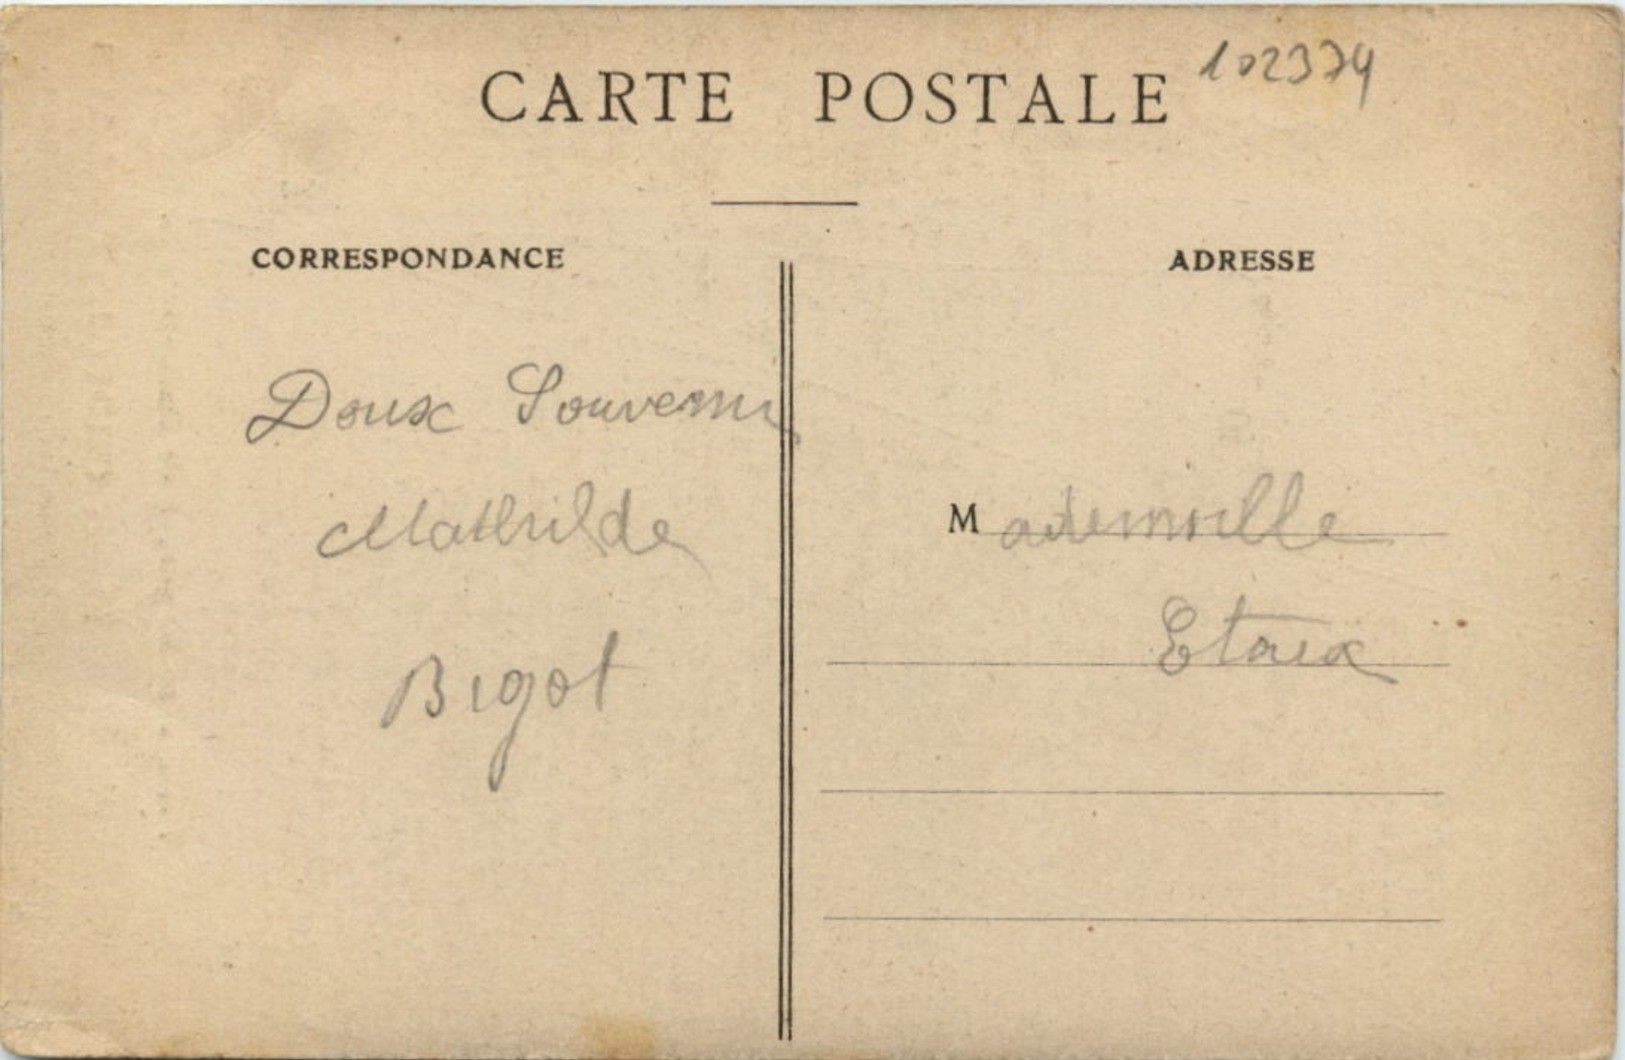 CARTE POSTALE
102374
CORRESPONDANCE
ADRESSE
Doux Souvenir
Mathilde
Bigot
Mademoiselle